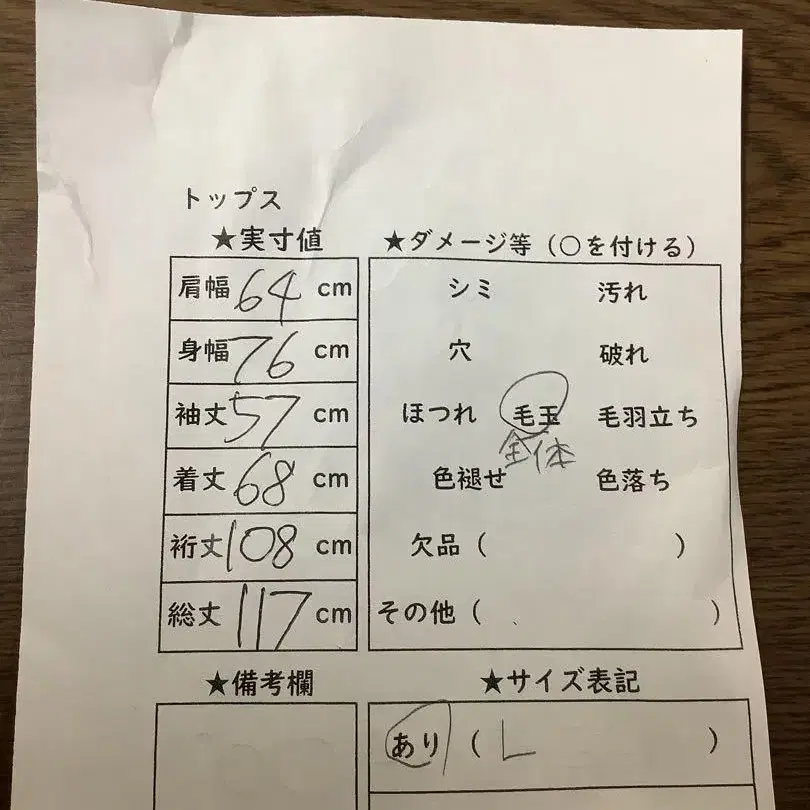 トップス
★実寸値
肩幅 64 cm
身幅 76 cm
袖丈 57 cm
着丈 68 cm
裄丈 108 cm
総丈 117 cm
★ダメージ等（○を付ける）
シミ 汚れ
穴 破れ
ほつれ 毛玉 毛羽立ち
全体
色褪せ 色落ち
欠品（ ）
その他（ ）
★備考欄
★サイズ表記
あり（ L ）